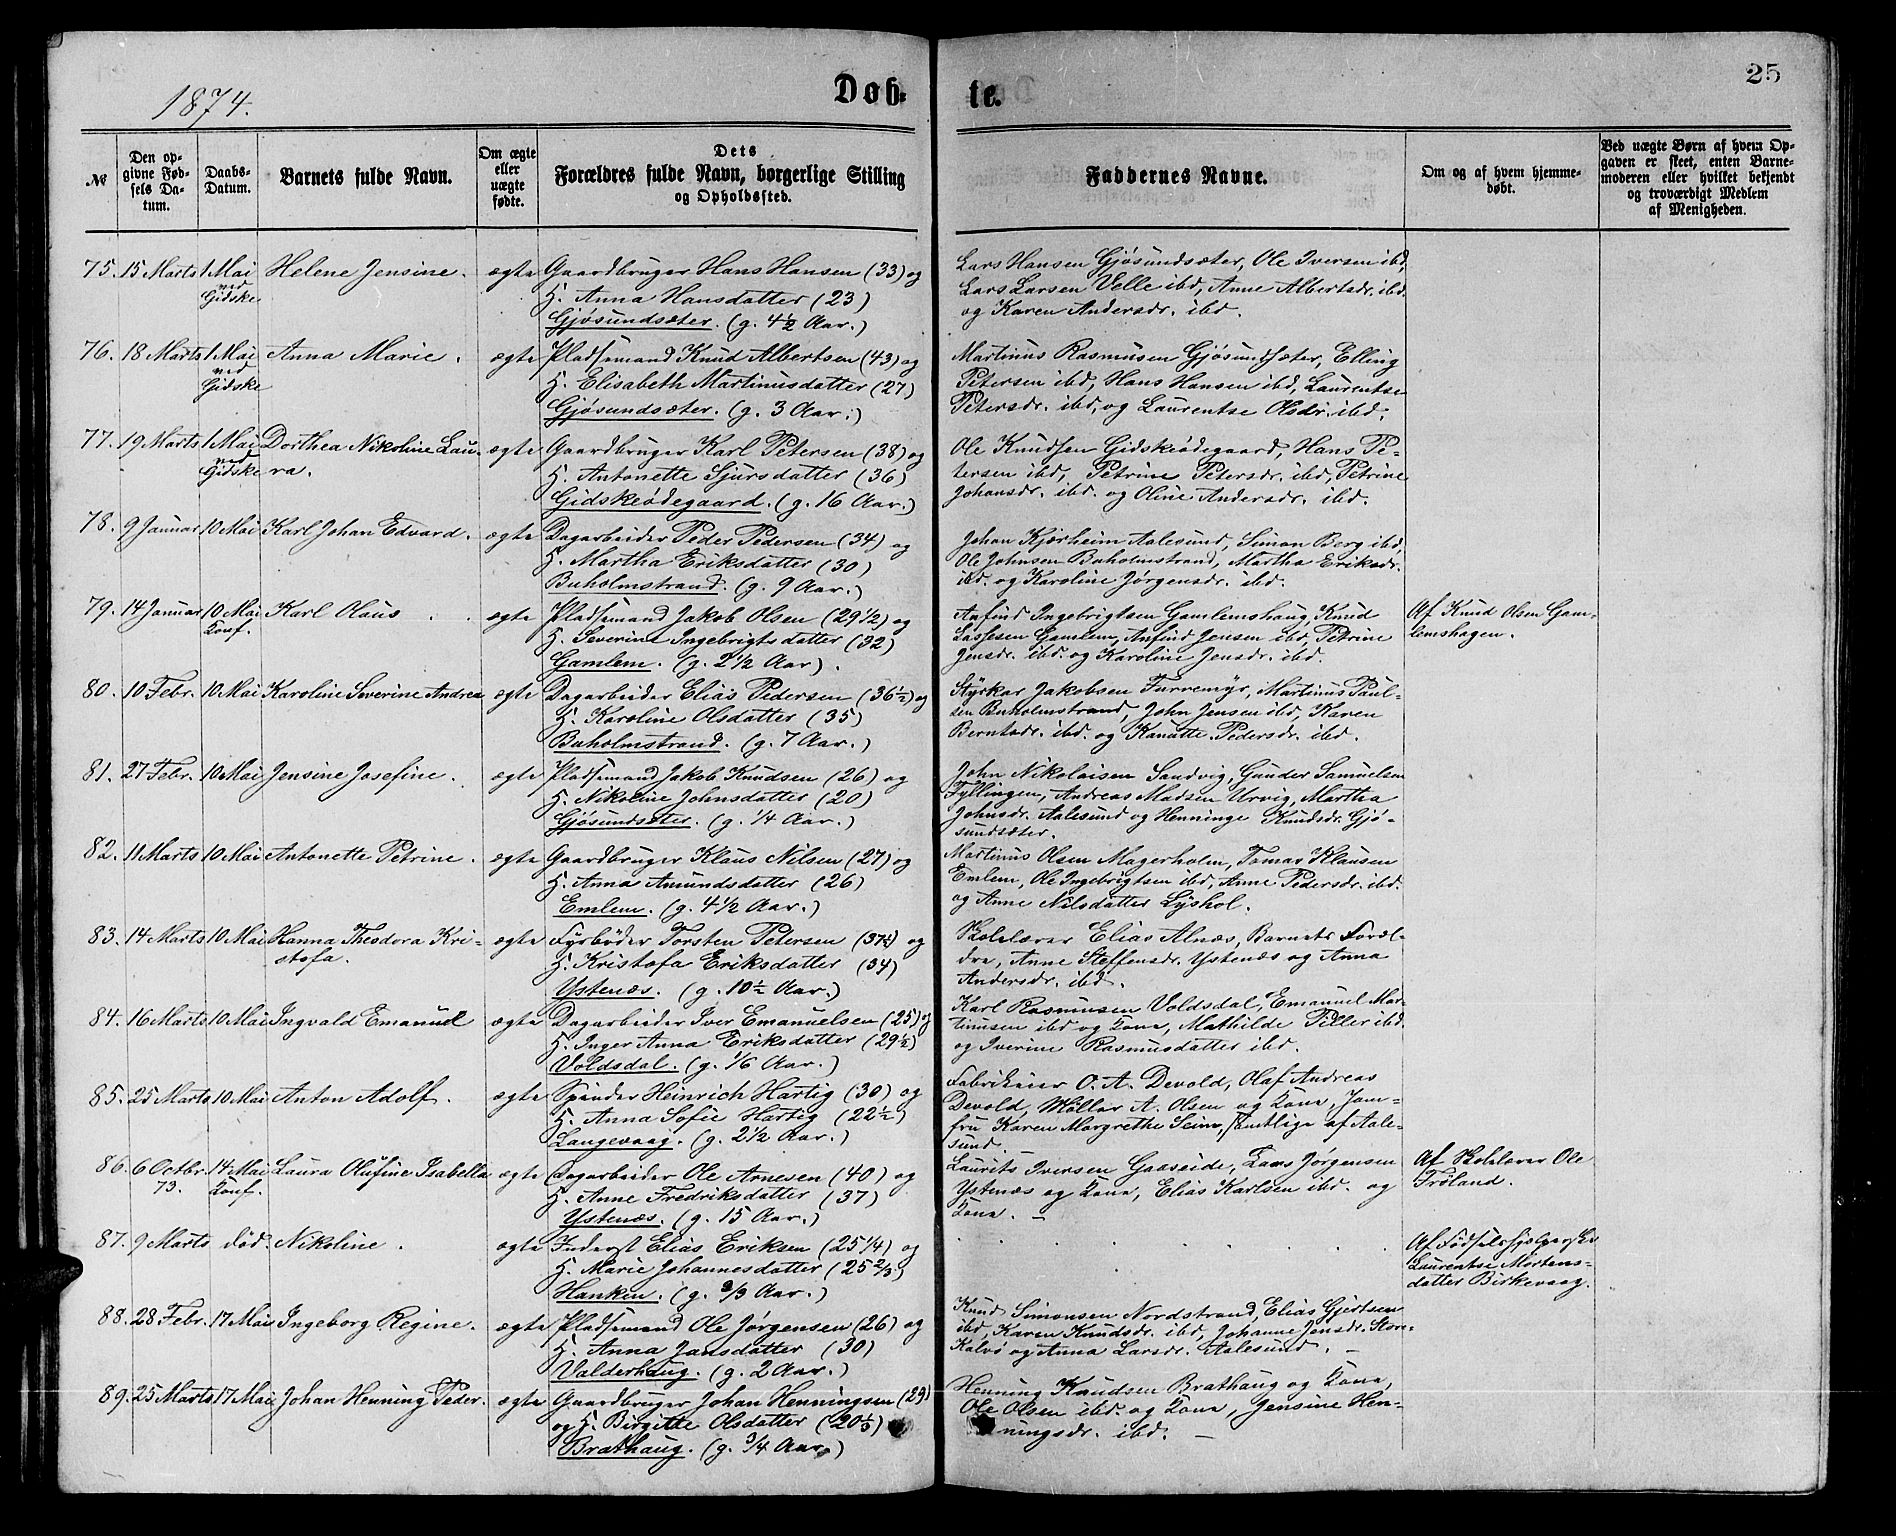 1874.
Døb-
te.
25
№
Den op-
givne Fød-
sels Da-
tum.
Daabs-
Datum.
Barnets fulde Navn.
Om ægte
eller
uægte
fødte.
Dets
Forældres fulde Navn, borgerlige Stilling
og Opholdssted.
Faddernes Navne.
Om og af hvem hjemme-
døbt.
Ved uægte Børn af hvem Op-
gaven er skeet, enten Barne-
moderen eller hvilket bekjendt
og troværdigt Medlem
af Menigheden.
75. 15 Marts 1 Mai Helene Jensine. ægte Gaardbruger Hans Hansen (33) og
ved
Gidske
H. Anna Hansdatter (23)
Gjøsundsæter. (g. 4½ Aar.)
Lars Hansen Gjøsundsæter, Ole Iversen ibd,
Lars Larsen Velle ibd, Anne Albertsdr. ibd.
og Karen Andersdr. ibd.
76. 18 Marts 1 Mai Anna Marie. ægte Pladsemand Knud Albertsen (43) og
ved
Gidske
H. Elisabeth Martinusdatter (27)
Gjøsundsæter. (g. 3 Aar.)
Martinus Rasmusen Gjøsundsæter, Elling
Petersen ibd, Hans Hansen ibd, Laurentse
Petersdr. ibd, og Laurentse Olsdr. ibd.
77. 19 Marts 1 Mai Dorthea Nikoline Lau- ægte Gaardbruger Karl Petersen (38) og
ved
Gidske ra.
H. Antonette Sjursdatter (36)
Gidskeødegaard. (g. 16 Aar.)
Ole Knudsen Gidskeødegaard, Hans Pe-
tersen ibd, Petrine Petersdr. ibd, Petrine
Johansdr. ibd. og Oline Andersdr. ibd.
78. 9 Januar 10 Mai Karl Johan Edvard. ægte Dagarbeider Peder Pedersen (34) og
H. Martha Eriksdatter (30)
Buholmstrand. (g. 9 Aar.)
Johan Kjørheim Aalesund, Simon Berg ibd,
Ole Johnsen Buholmstrand, Martha Eriksdr.
ibd. og Karoline Jørgensdr. ibd.
79. 14 Januar 10 Mai Karl Olaus . . ægte Pladsemand Jakob Olsen (29½) og
Konf.
H. Severine Ingebrigtsdatter (32)
Gamlem. (g. 2½ Aar).
Anfind Ingebrigtsen Gamlemshaug, Knud
Lassesen Gamlem, Anfind Jensen ibd, Petrine
Jensdr. ibd. og Karoline Jensdr. ibd.
Af Knud Olsen Gam-
lemshagen.
80. 10 Febr. 10 Mai Karoline Severine Andrea ægte Dagarbeider Elias Pedersen (36½) og
H. Karoline Olsdatter (35)
Buholmstrand. (g. 7 Aar.)
Styrkar Jakobsen Furremyr, Martinus Paul-
sen Buholmstrand, John Jensen ibd, Karen
Berntsdr. ibd. og Kanutte Pedersdr. ibd.
81. 27 Febr. 10 Mai Jensine Josefine. ægte Pladsemand Jakob Knudsen (26) og
H. Nikoline Johnsdatter (20)
Gjøsundsæter. (g. ¼ Aar.)
John Nikolaisen Sandvig, Gunder Samuelsen
Fyllingen, Andreas Madsen Urvig, Martha
Johnsdr. Aalesund og Henninge Knudsdr. Gjø-
sundsæter.
82. 11 Marts 10 Mai Antonette Petrine. ægte Gaardbruger Klaus Nilsen (27) og
H. Anna Amundsdatter (26)
Emlem. (g. 4½ Aar.)
Martinus Olsen Magerholm, Tomas Klausen
Emlem, Ole Ingebrigtsen ibd, Anne Pedersdr. ibd.
og Anne Nilsdatter Lyshol.
83. 14 Marts 10 Mai Hanna Theodora Kri- ægte Fyrbøder Torsten Petersen (37¼) og
stofa.
H. Kristofa Eriksdatter (34)
Ystenæs. (g. 10½ Aar.)
Skolelærer Elias Alnæs, Barnets Foræl-
dre, Anne Steffensdr. Ystenæs og Anna
Andersdr. ibd.
84. 16 Marts 10 Mai Ingvald Emanuel ægte Dagarbeider Iver Emanuelsen (25) og
H. Inger Anna Eriksdatter (29½)
Voldsdal. (g. 1/6 Aar.)
Karl Rasmusen Voldsdal, Emanuel Mar-
tinusen ibd og Kone, Mathilde Piller ibd.
og Iverine Rasmusdatter ibd.
85. 25 Marts 10 Mai Anton Adolf. ægte Spinder Heinrich Hartig (30) og
H. Anna Sofie Hartig (22½)
Langevaag. (g. 2½ Aar.)
Fabrikeier O. A. Devold, Olaf Andreas
Devold, Møller A. Olsen og Kone, Jom-
fru Karen Margrethe Seim, samtlige af Aale-
sund.
86. 6 Octbr. 14 Mai Laura Olufine Isabella ægte Dagarbeider Ole Arnesen (40) og
73. Konf.
H. Anne Fredriksdatter (37)
Ystenæs. (g. 15 Aar.)
Laurits Iversen Gaaseide, Lars Jørgensen
Ystenæs og Kone, Elias Karlsen ibd. og
Kone. –
Af Skolelærer Ole
Frøland.
87. 9 Marts død. Nikoline. ægte Inderst Elias Eriksen (25¼) og
H. Marie Johannesdatter (25 2/3)
Hanken. (g. 2/3 Aar.)
Af Fødselshjelperske
Laurentse Mortens-
datter Birkevaag.
88. 28 Febr. 17 Mai Ingeborg Regine. ægte Pladsemand Ole Jørgensen (26) og
H. Anna Jansdatter (30)
Valderhaug. (g. 2 Aar.)
Knud Simonsen Nordstrand, Elias Gjertsen
ibd, Karen Knudsdr. ibd, Johanne Jensdr. Store-
Kalvø og Anna Larsdr. Aalesund. –
89. 25 Marts 17 Mai Johan Henning Peder. ægte Gaardbruger Johan Henningsen (29)
og H. Birgitte Olsdatter (20⅓)
Brathaug. (g. ¾ Aar.)
Henning Knudsen Brathaug og Kone,
Ole Olsen ibd. og Kone, Jensine Hen-
ningsdr. ibd. –